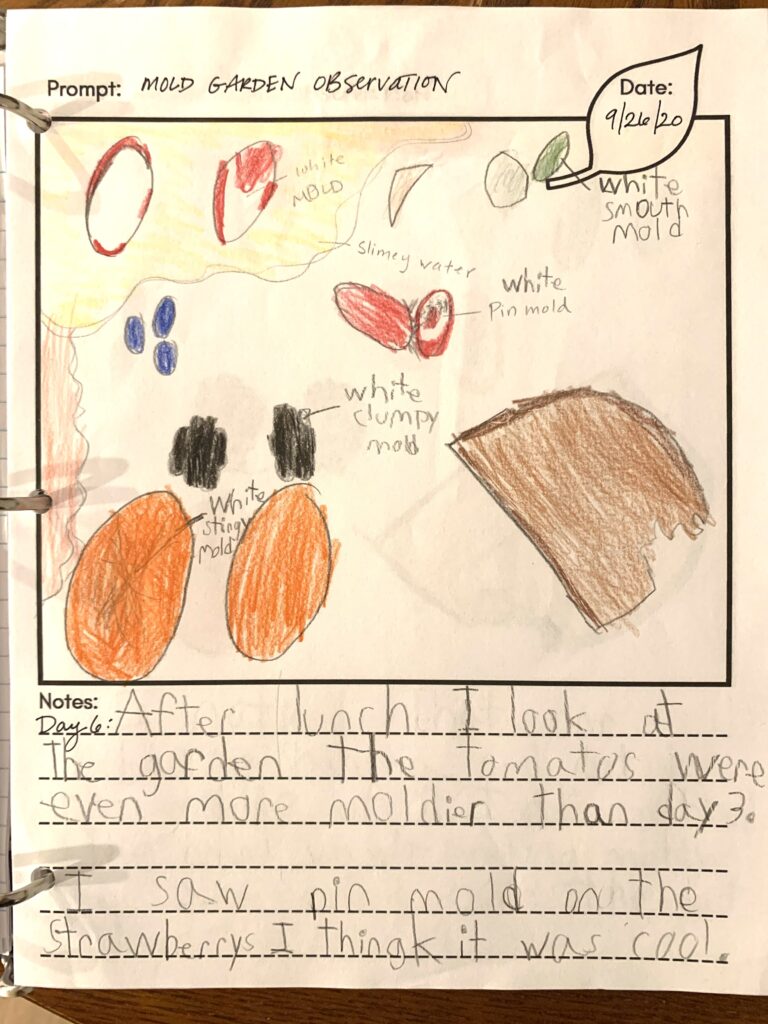 Prompt: MOLD GARDEN OBSERVATION
Date:
9/26/20
white
MOLD
Slimey water
white
smouth
mold
white
Pin mold
white
clumpy
mold
White
stingy
mold
Notes:
Day 6: After lunch I look at
the garden the tomatos were
even more moldier than day 3.
I saw pin mold on the
strawberrys I thingk it was cool.